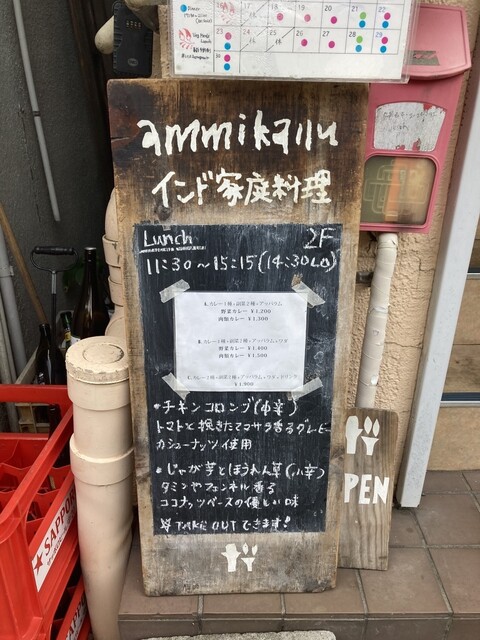 16 17 18 19 20 21 22
23 24 25 26 27 28 29
30
Dinner
ammikallu
インド家庭料理
Lunch 2F
11:30～15:15(14:30LO)
カレー1種+副菜2種+アッパラム
野菜カレー ¥1,200
肉類カレー ¥1,300
カレー1種+副菜2種+アッパラム+ワダ
野菜カレー ¥1,400
肉類カレー ¥1,500
カレー2種+副菜2種+アッパラム+ワダ+ドリンク
¥1,900
•チキンコロンブ(中辛)
トマトと挽きたてマサラ香るグレービー
カシューナッツ使用
•じゃが芋とほうれん草(小辛)
クミンやフェンネル香る
ココナッツベースの優しい味
※TAKE OUTできます!
PEN
SAPPORO